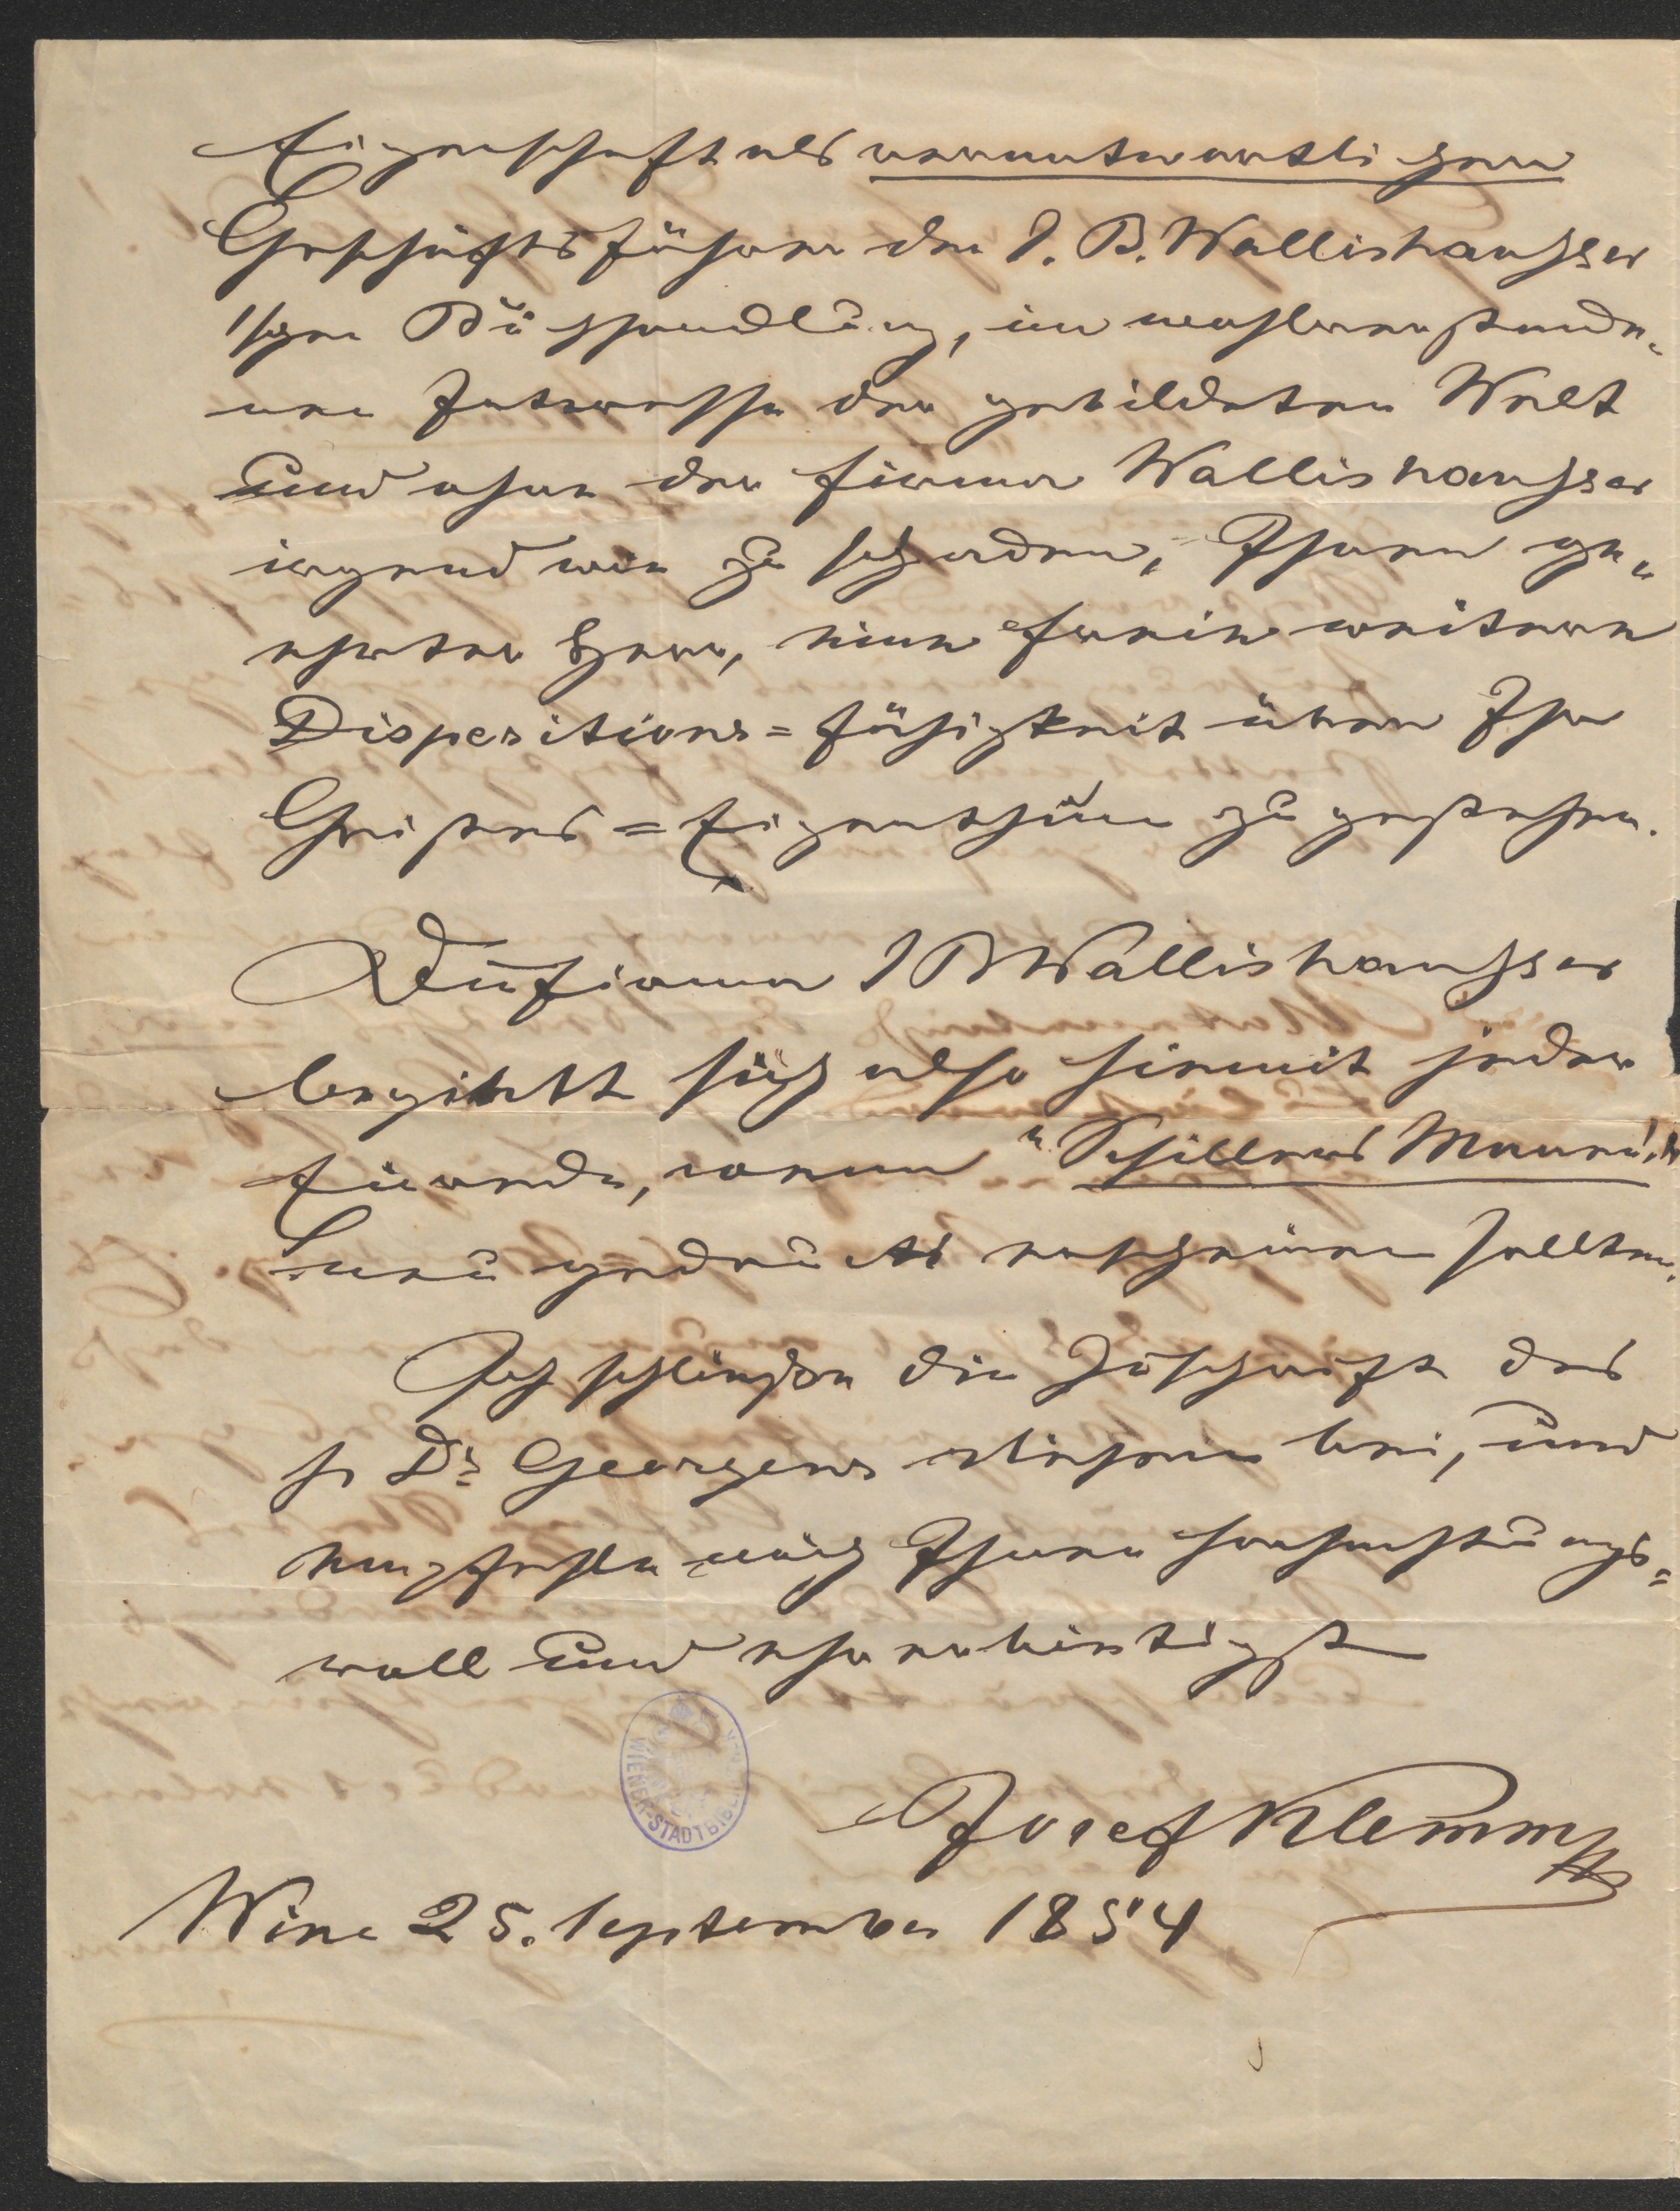 Eigenschaft als verantwortlicher
Geschäftsführer der J. B. Wallishausser
'schen Buchhandlung, im wohlverstande„
nen Interesse der gebildeten Welt
und ohne der Firma Wallishausser
irgend wie zu schaden, Ihnen ge„
ehrter Herr, eine freie weitere
Dispositions=fähigkeit über Ihr
Geistes=Eigenthum zu gestehen.
Die Firma J B Wallishausser
begibt sich also hiermit jeder
Einrede, wenn "Schillers Manen"
neu gedruckt erscheinen sollten.
Ich schließe die Zuschrift des
H Dr Georgens  bei, und
empfehle mich Ihnen hochachtungs=
voll und ehrerbietigst
Josef Klemm
Wien 25. September 1854
WIENER-STADTBIBLIOTHEK